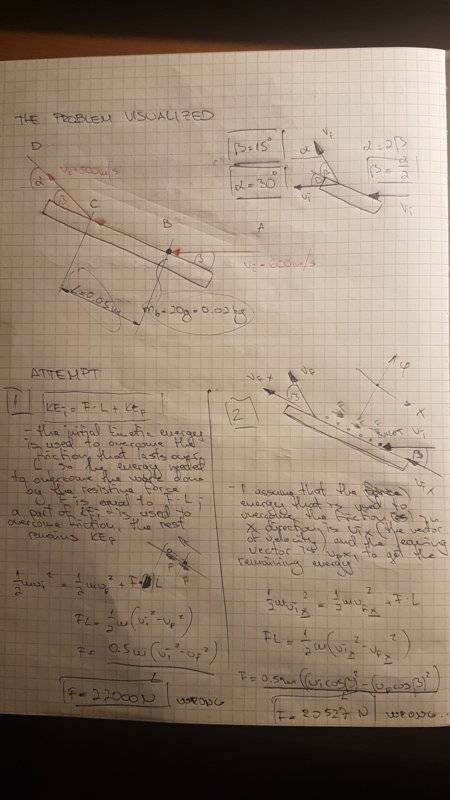 THE PROBLEM VISUALIZED
D
α
β
C
B
A
β
L=0.05m
mb=20g=0.02kg
β=15°
α=30°
α
vf
vi
vi
α=2β
β=α/2
ATTEMPT
1
KEi = F·L + KEf
- the initial kinetic energy
is used to overcome the
friction that lasts over
L so the energy needed
to overcome the work done
by the resistive force
is equal to F·L ;
a part of KEi is used to
overcome friction, the rest
remains KEf
1/2mvi² = 1/2mvf² + F·L
FL = 1/2m(vi²-vf²)
F = 0.5m(vi²-vf²)/L
F = 22000N wrong
2
vfx
vf
β
y
x
vi
β
vix
- I assume that the
energy that is used to
overcome the friction in
x direction is vix (the vector
of velocity) and the leaving
vector is vfx, to get the
remaining energy
1/2mvix² = 1/2mvfx² + F·L
FL = 1/2m(vix²-vfx²)
F = 0.5m((vicosβ)²-(vfcosβ)²)/L
F = 20527 N wrong